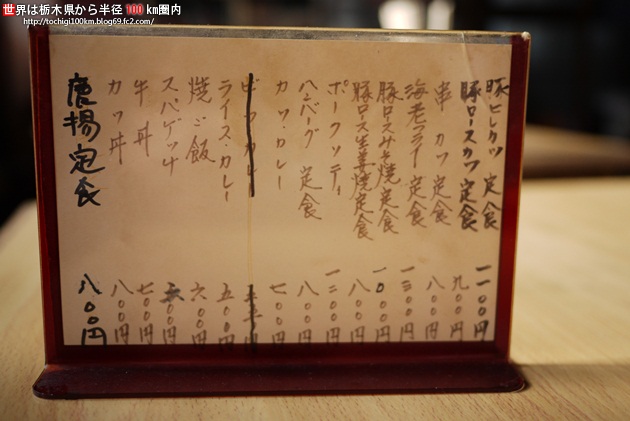 世界は栃木県から半径 100 km圏内
http://tochigi100km.blog69.fc2.com/
豚ヒレカツ定食 一一〇〇円
豚ロースカツ定食 九〇〇円
串カツ定食 八〇〇円
海老フライ定食 一三〇〇円
豚ロースみそ焼定食 一〇〇〇円
豚ロース生姜焼定食 八〇〇円
ポークソティ 一二〇〇円
ハンバーグ定食 八〇〇円
カツ・カレー 七〇〇円
ビーフカレー
ライス・カレー 五〇〇円
焼ご飯 六〇〇円
スパゲッチ 〇〇円
牛丼 七〇〇円
カツ丼 八〇〇円
唐揚定食 八〇〇円